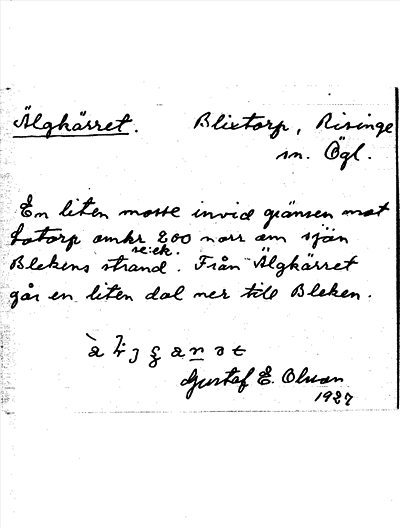 Älgkärret. Blixtorp, Risinge
sn. Ögl.
En liten mosse invid gränsen mot
Lotorp omkr 200 norr om sjön
se: ek.
Blekens strand. Från Älgkärret
går en liten dal ner till Bleken.
Gustaf E. Olsson
1927